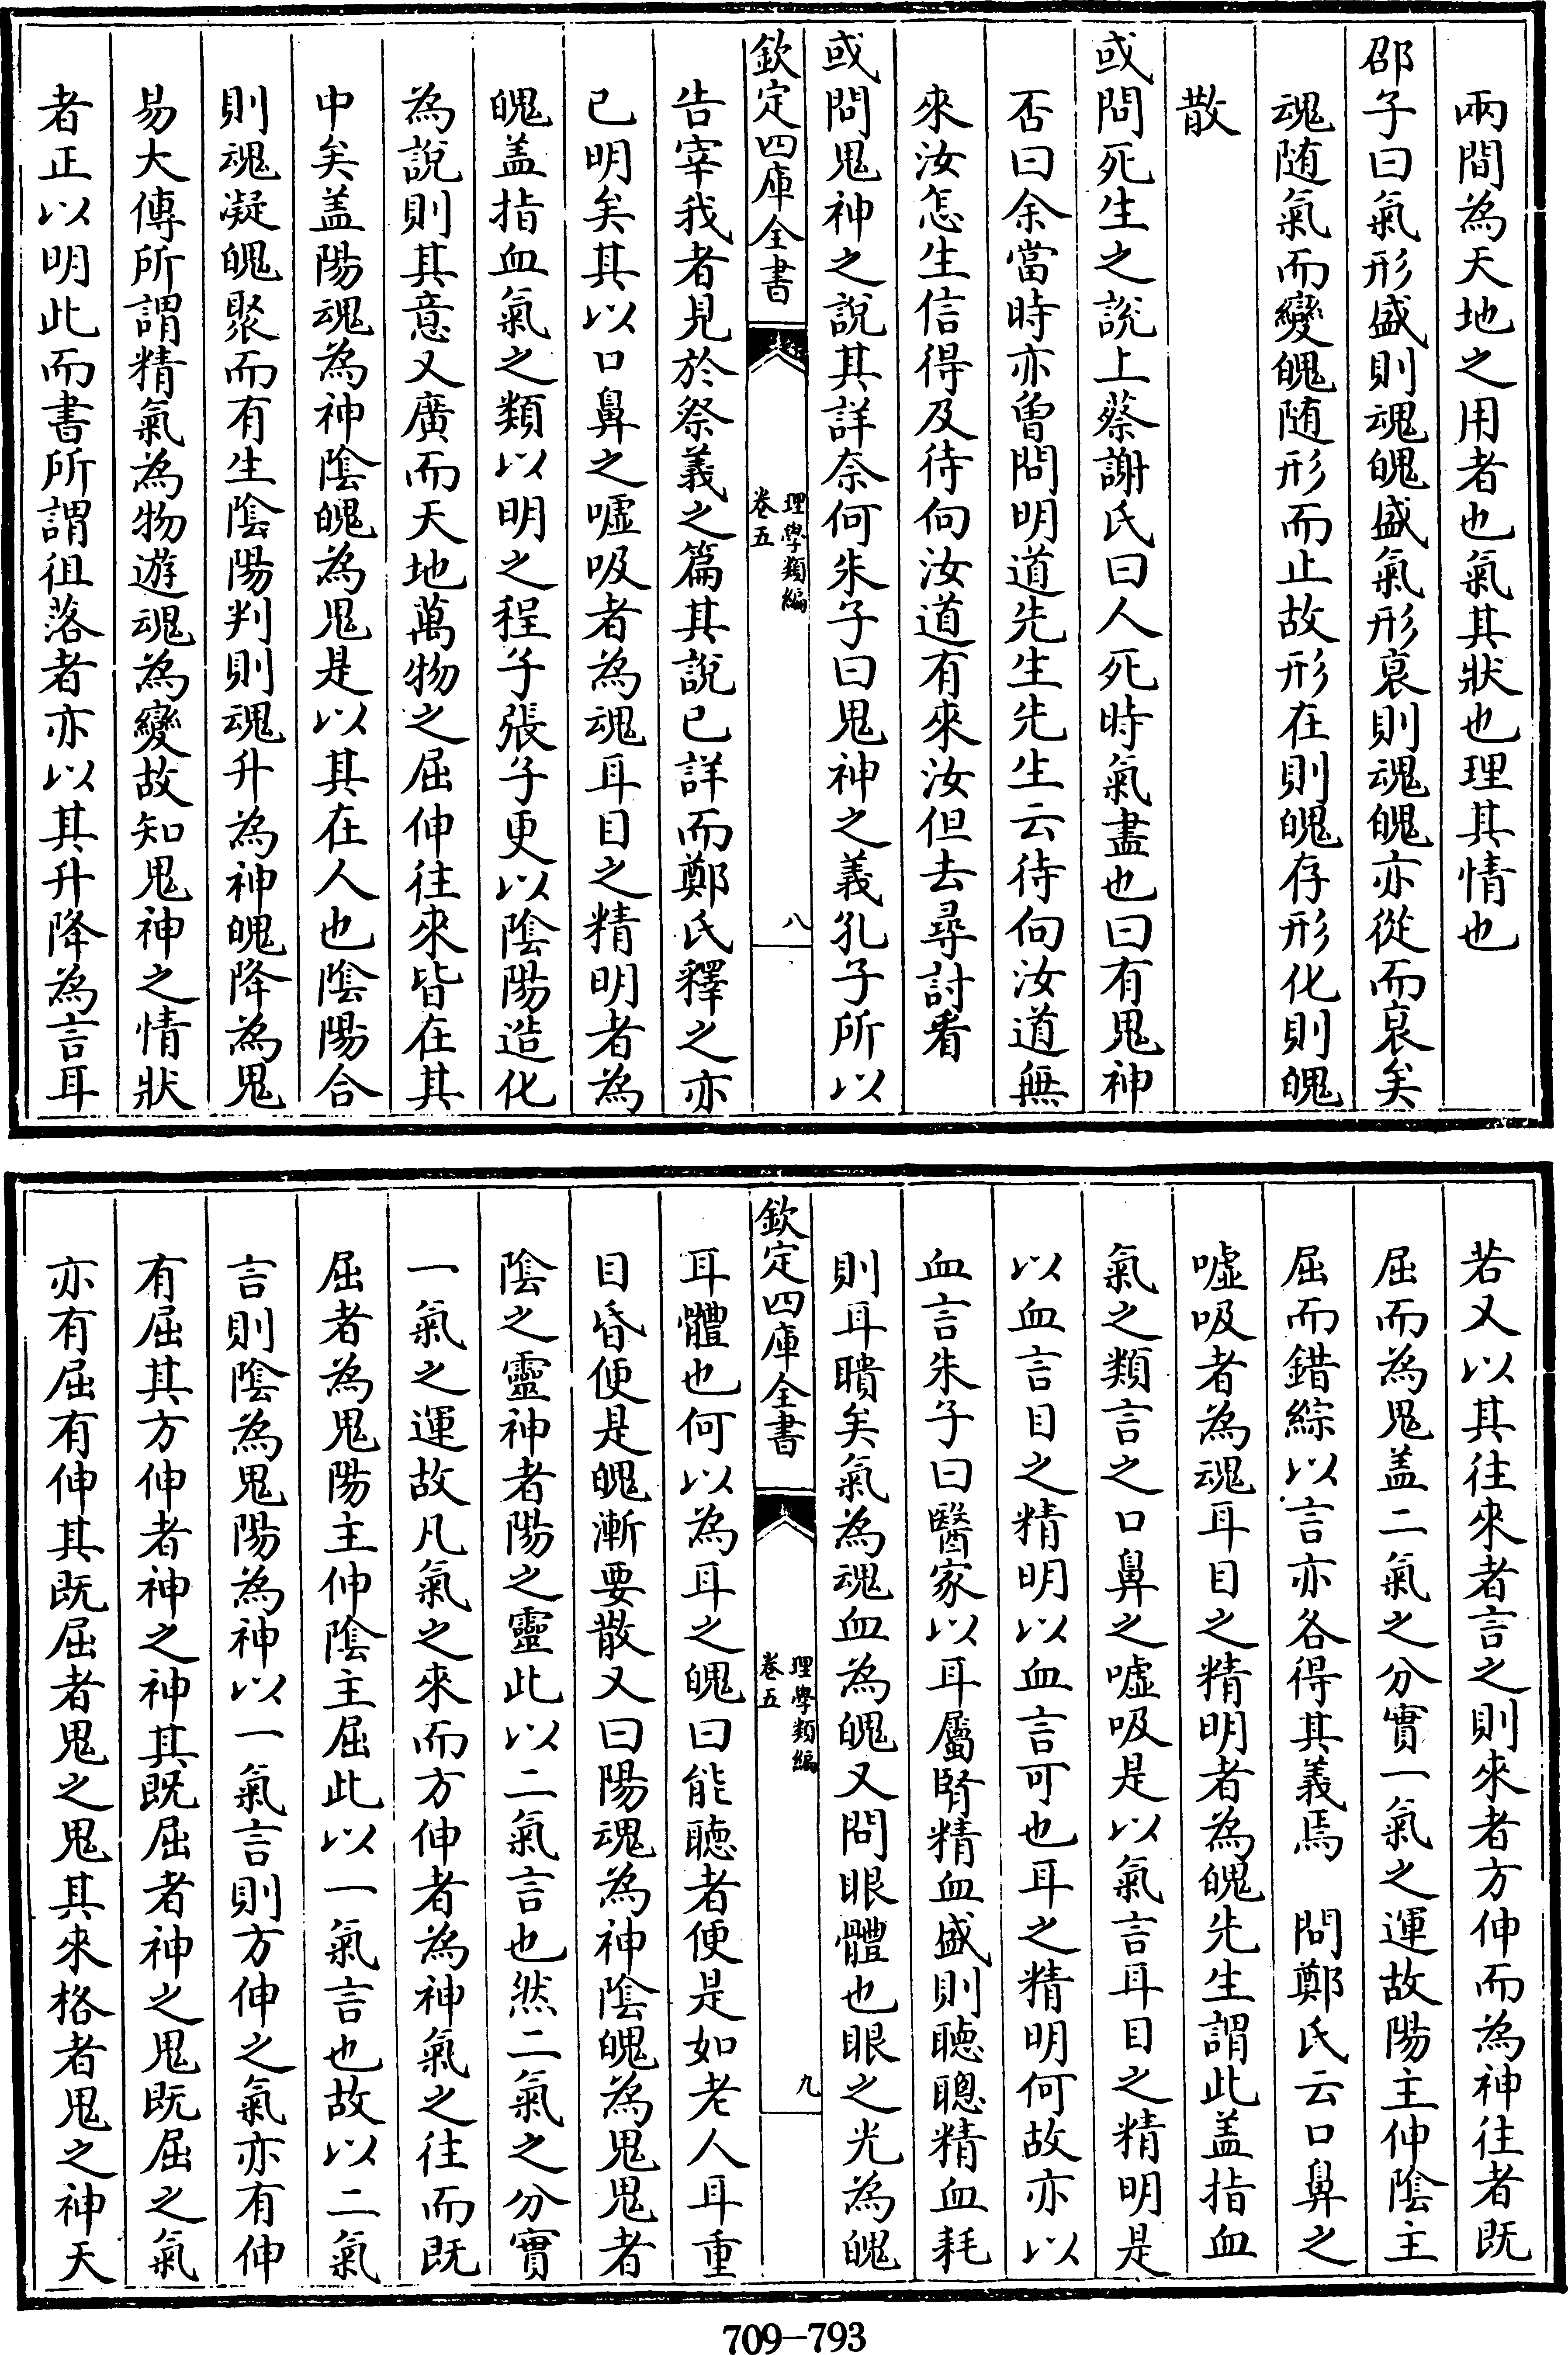 兩間為天地之用者也氣其狀也理其情也
邵子曰氣形盛則魂魄盛氣形衰則魂魄亦從而衰矣
魂随氣而變魄随形而止故形在則魄存形化則魄
散
或問死生之說上蔡謝氏曰人死時氣盡也曰有鬼神
否曰余當時亦曾問明道先生先生云待向汝道無
來汝怎生信得及待向汝道有來汝但去尋討看
或問鬼神之說其詳奈何朱子曰鬼神之義孔子所以
欽定四庫全書
理學類編
卷五
八
告宰我者見於祭義之篇其說已詳而鄭氏釋之亦
已明矣其以口鼻之嘘吸者為魂耳目之精明者為
魄盖指血氣之類以明之程子張子更以陰陽造化
為說則其意又廣而天地萬物之屈伸往來皆在其
中矣盖陽魂為神陰魄為鬼是以其在人也陰陽合
則魂凝魄聚而有生陰陽判則魂升為神魄降為鬼
易大傳所謂精氣為物遊魂為變故知鬼神之情狀
者正以明此而書所謂徂落者亦以其升降為言耳
若又以其往來者言之則來者方伸而為神往者既
屈而為鬼盖二氣之分實一氣之運故陽主伸陰主
屈而錯綜以言亦各得其義焉　問鄭氏云口鼻之
嘘吸者為魂耳目之精明者為魄先生謂此盖指血
氣之類言之口鼻之嘘吸是以氣言耳目之精明是
以血言目之精明以血言可也耳之精明何故亦以
血言朱子曰醫家以耳屬腎精血盛則聽聰精血耗
則耳聵矣氣為魂血為魄又問眼體也眼之光為魄
欽定四庫全書
理學類編
卷五
九
耳體也何以為耳之魄曰能聽者便是如老人耳重
目昏便是魄漸要散又曰陽魂為神陰魄為鬼鬼者
陰之靈神者陽之靈此以二氣言也然二氣之分實
一氣之運故凡氣之來而方伸者為神氣之往而既
屈者為鬼陽主伸陰主屈此以一氣言也故以二氣
言則陰為鬼陽為神以一氣言則方伸之氣亦有伸
有屈其方伸者神之神其既屈者神之鬼既屈之氣
亦有屈有伸其既屈者鬼之鬼其來格者鬼之神天
709-793